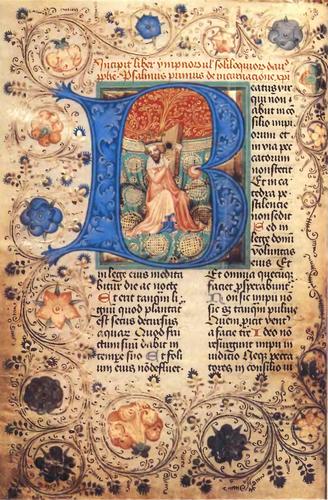 Incipit liber ympnor ul soliloquior dauit
pphe Psalmus primus de incarnacione xpi
B
eatus vir
qui non
abiit in co
silio impi
orum et
in via pec
catorum
non stetit
Et in ca
tedra pe
stilencie
non sedit
Sed in
lege domi
voluntas
eius Et
in lege eius medita
bitur die ac nocte
Et erit tanqm li
gnu quod plantat
est secus decursus
aquar Quod fru
ctum suu dabit in
tempe suo Et foli
um eius no defluet
Et omnia quecuqz
faciet psperabunt
Non sic impii no
sic Sed tanqm puluis
Quem picit vent
a facie tre Ideo no
resurgunt impii in
iudicio Neqz pecca
tores in consilio iu